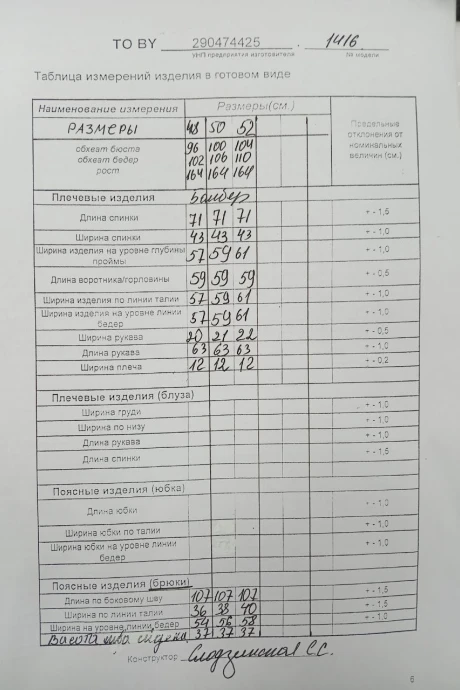 TO BY 290474425 . 1416
УНП предприятия изготовителя № модели
Таблица измерений изделия в готовом виде
Наименование измерения Размеры(см.) Предельные отклонения от номинальных величин (см.)
РАЗМЕРЫ 48 50 52
обхват бюста 96 100 104
обхват бедер 102 106 110
рост 164 164 164
Плечевые изделия Бомбер
Длина спинки 71 71 71 + - 1,5
Ширина спинки 43 43 43 + - 1,0
Ширина изделия на уровне глубины проймы 57 59 61 + - 1,0
Длина воротника/горловины 59 59 59 + - 0,5
Ширина изделия по линии талии 57 59 61 + - 1,0
Ширина изделия на уровне линии бедер 57 59 61 + - 1,0
Ширина рукава 20 21 22 + - 0,5
Длина рукава 63 63 63 + - 1,0
Ширина плеча 12 12 12 + - 0,2
Плечевые изделия (блуза)
Ширина груди + - 1,0
Ширина по низу + - 1,0
Длина рукава + - 1,0
Длина спинки + - 1,5
Поясные изделия (юбка)
Длина юбки + - 1,0
Ширина юбки по талии + - 1,0
Ширина юбки на уровне линии бедер + - 1,0
Поясные изделия (брюки)
Длина по боковому шву 107 107 107 + - 1,5
Ширина по линии талии 36 38 40 + - 1,5
Ширина на уровне линии бедер 54 56 58 + - 1,0
Высота 37 37 37
Конструктор С.С.
6